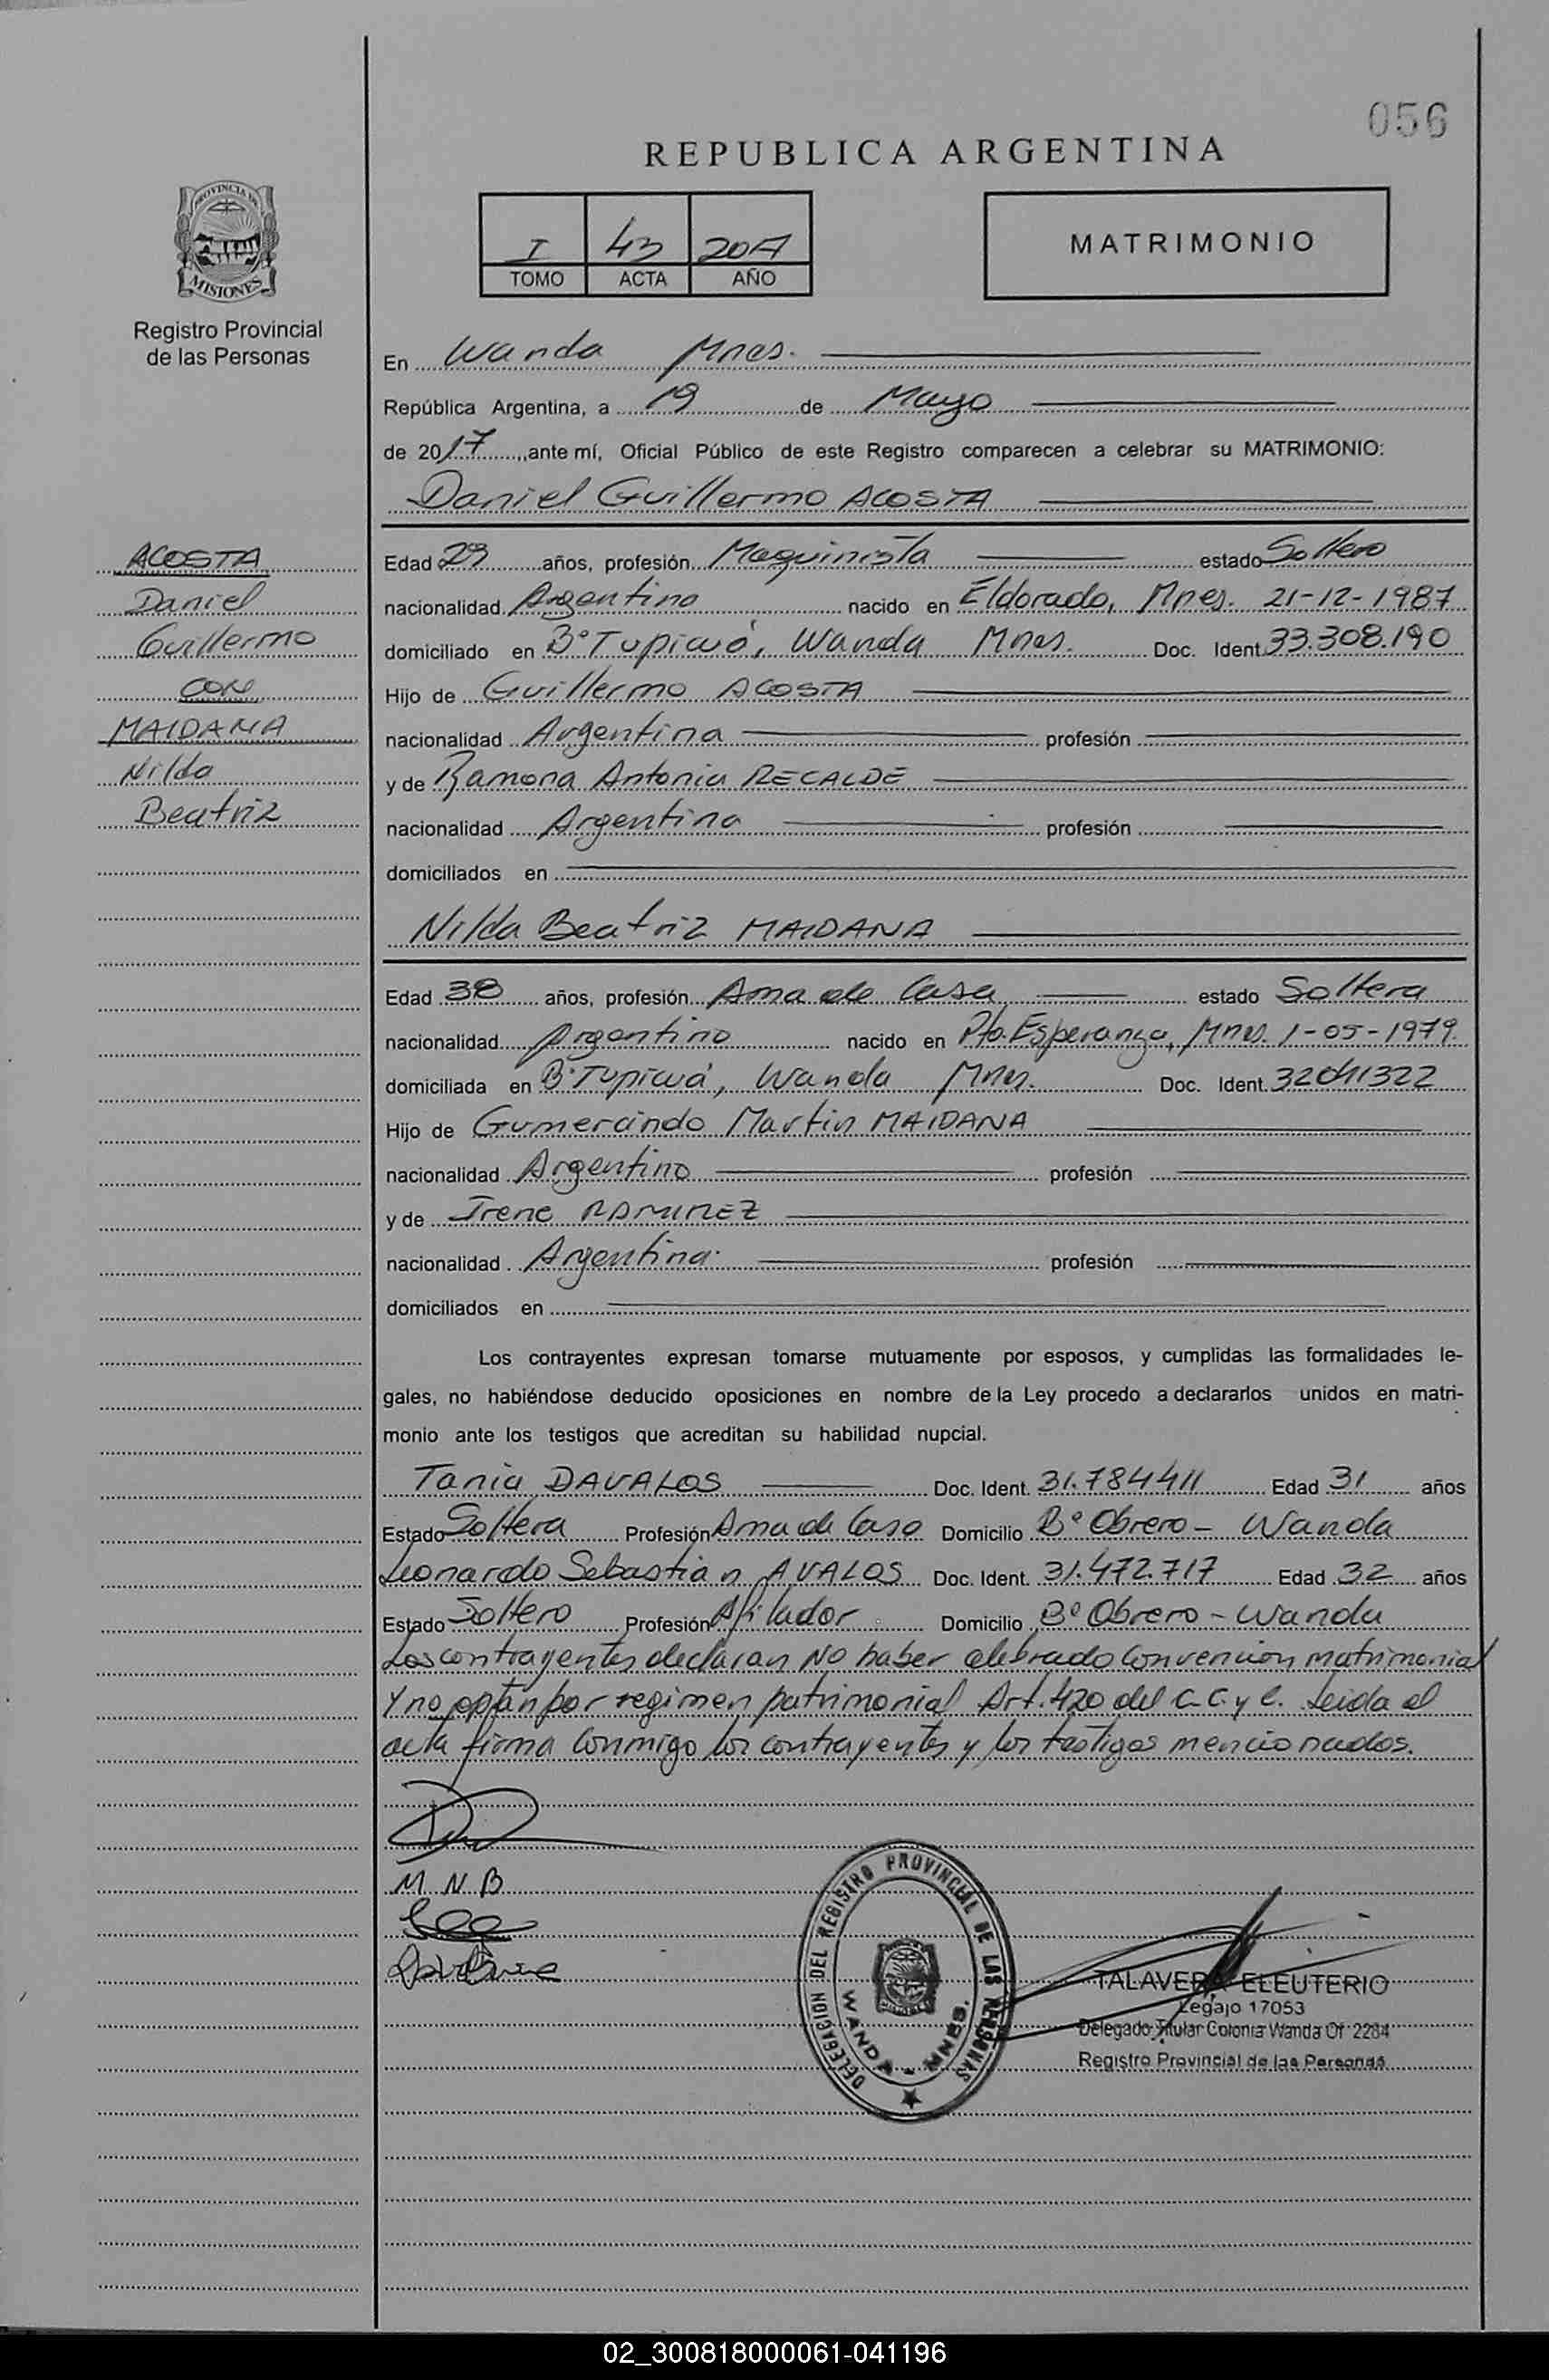 056
REPUBLICA ARGENTINA
PROVINCIA DE
MISIONES
Registro Provincial
de las Personas
I 43 2017
TOMO ACTA AÑO
MATRIMONIO
En Wanda Mnes.
República Argentina, a 19 de Mayo
de 2017, ante mí, Oficial Público de este Registro comparecen a celebrar su MATRIMONIO:
Daniel Guillermo ACOSTA
ACOSTA
Daniel
Guillermo
CON
MAIDANA
Nilda
Beatriz
Edad 29 años, profesión Maquinista estado Soltero
nacionalidad Argentino nacido en Eldorado, Mnes. 21-12-1987
domiciliado en B° Tupicuá, Wanda Mnes. Doc. Ident. 33.308.190
Hijo de Guillermo ACOSTA
nacionalidad Argentina profesión
y de Ramona Antonia RECALDE
nacionalidad Argentina profesión
domiciliados en
Nilda Beatriz MAIDANA
Edad 38 años, profesión Ama de Casa estado Soltera
nacionalidad Argentino nacido en Pto. Esperanza, Mnes. 1-05-1979
domiciliada en B° Tupicuá, Wanda Mnes. Doc. Ident. 32041322
Hijo de Gumercindo Martin MAIDANA
nacionalidad Argentino profesión
y de Irene RAMIREZ
nacionalidad Argentina profesión
domiciliados en
Los contrayentes expresan tomarse mutuamente por esposos, y cumplidas las formalidades le-
gales, no habiéndose deducido oposiciones en nombre de la Ley procedo a declararlos unidos en matri-
monio ante los testigos que acreditan su habilidad nupcial.
Tania DAVALOS Doc. Ident. 31.784411 Edad 31 años
Estado Soltera Profesión Ama de Casa Domicilio B° Obrero - Wanda
Leonardo Sebastian AVALOS Doc. Ident. 31.472.717 Edad 32 años
Estado Soltero Profesión Afilador Domicilio B° Obrero - Wanda
Los contrayentes declaran NO haber celebrado Convencion matrimonial
Y no optan por regimen patrimonial Art. 420 del C.C. y C. Leida el
acta firma conmigo los contrayentes y los testigos mencionados.
M N B
DELEGACION DEL REGISTRO PROVINCIAL DE LAS PERSONAS
WANDA - MNES.
TALAVERA ELEUTERIO
Legajo 17053
Delegado Titular Colonia Wanda Of 2284
Registro Provincial de las Personas
02_300818000061-041196